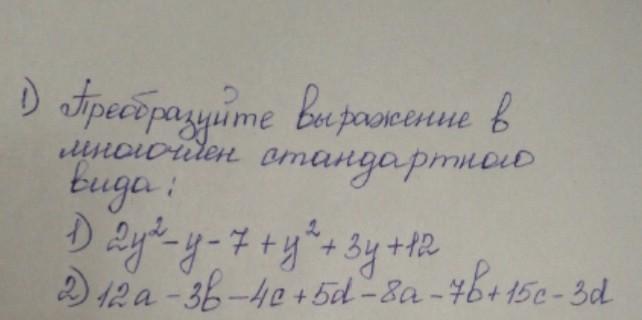 1) Преобразуйте выражение в
многочлен стандартного
вида:
1) 2y² - y - 7 + y² + 3y + 12
2) 12a - 3b - 4c + 5d - 8a - 7b + 15c - 3d